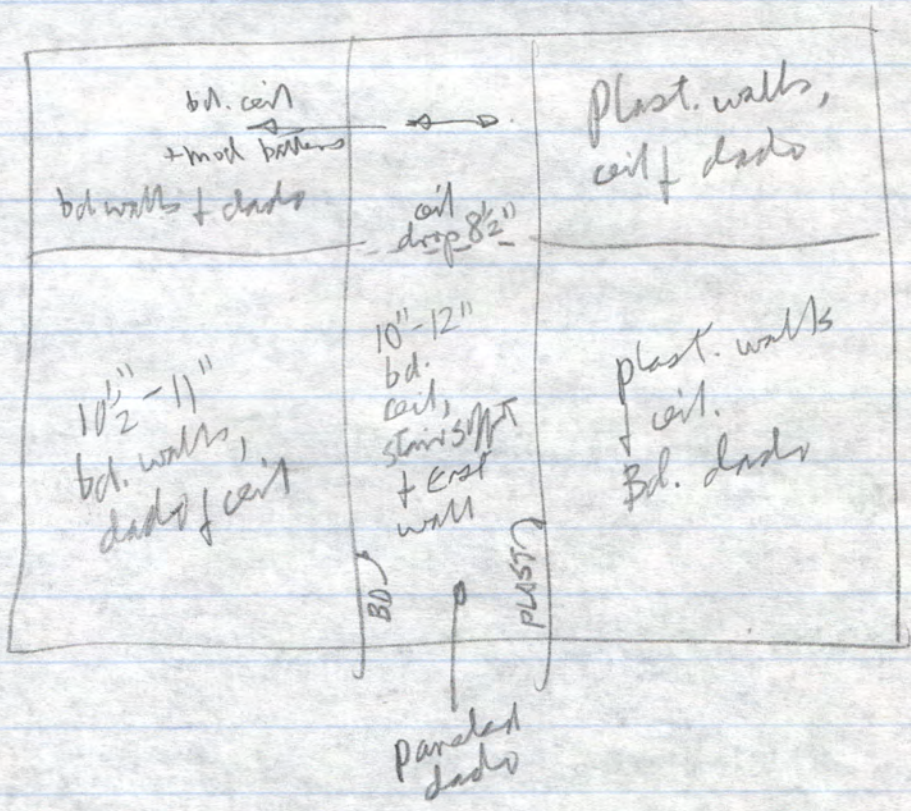 bd. ceil
+ mod battens
bd walls + dado
ceil
drop 8½"
Plast. walls,
ceil + dado
10½"-11"
bd. walls,
dado + ceil
10"-12"
bd.
ceil,
stair soffit
+ East
wall
plast. walls
ceil.
Bd. dado
BD
PLAST
paneled
dado